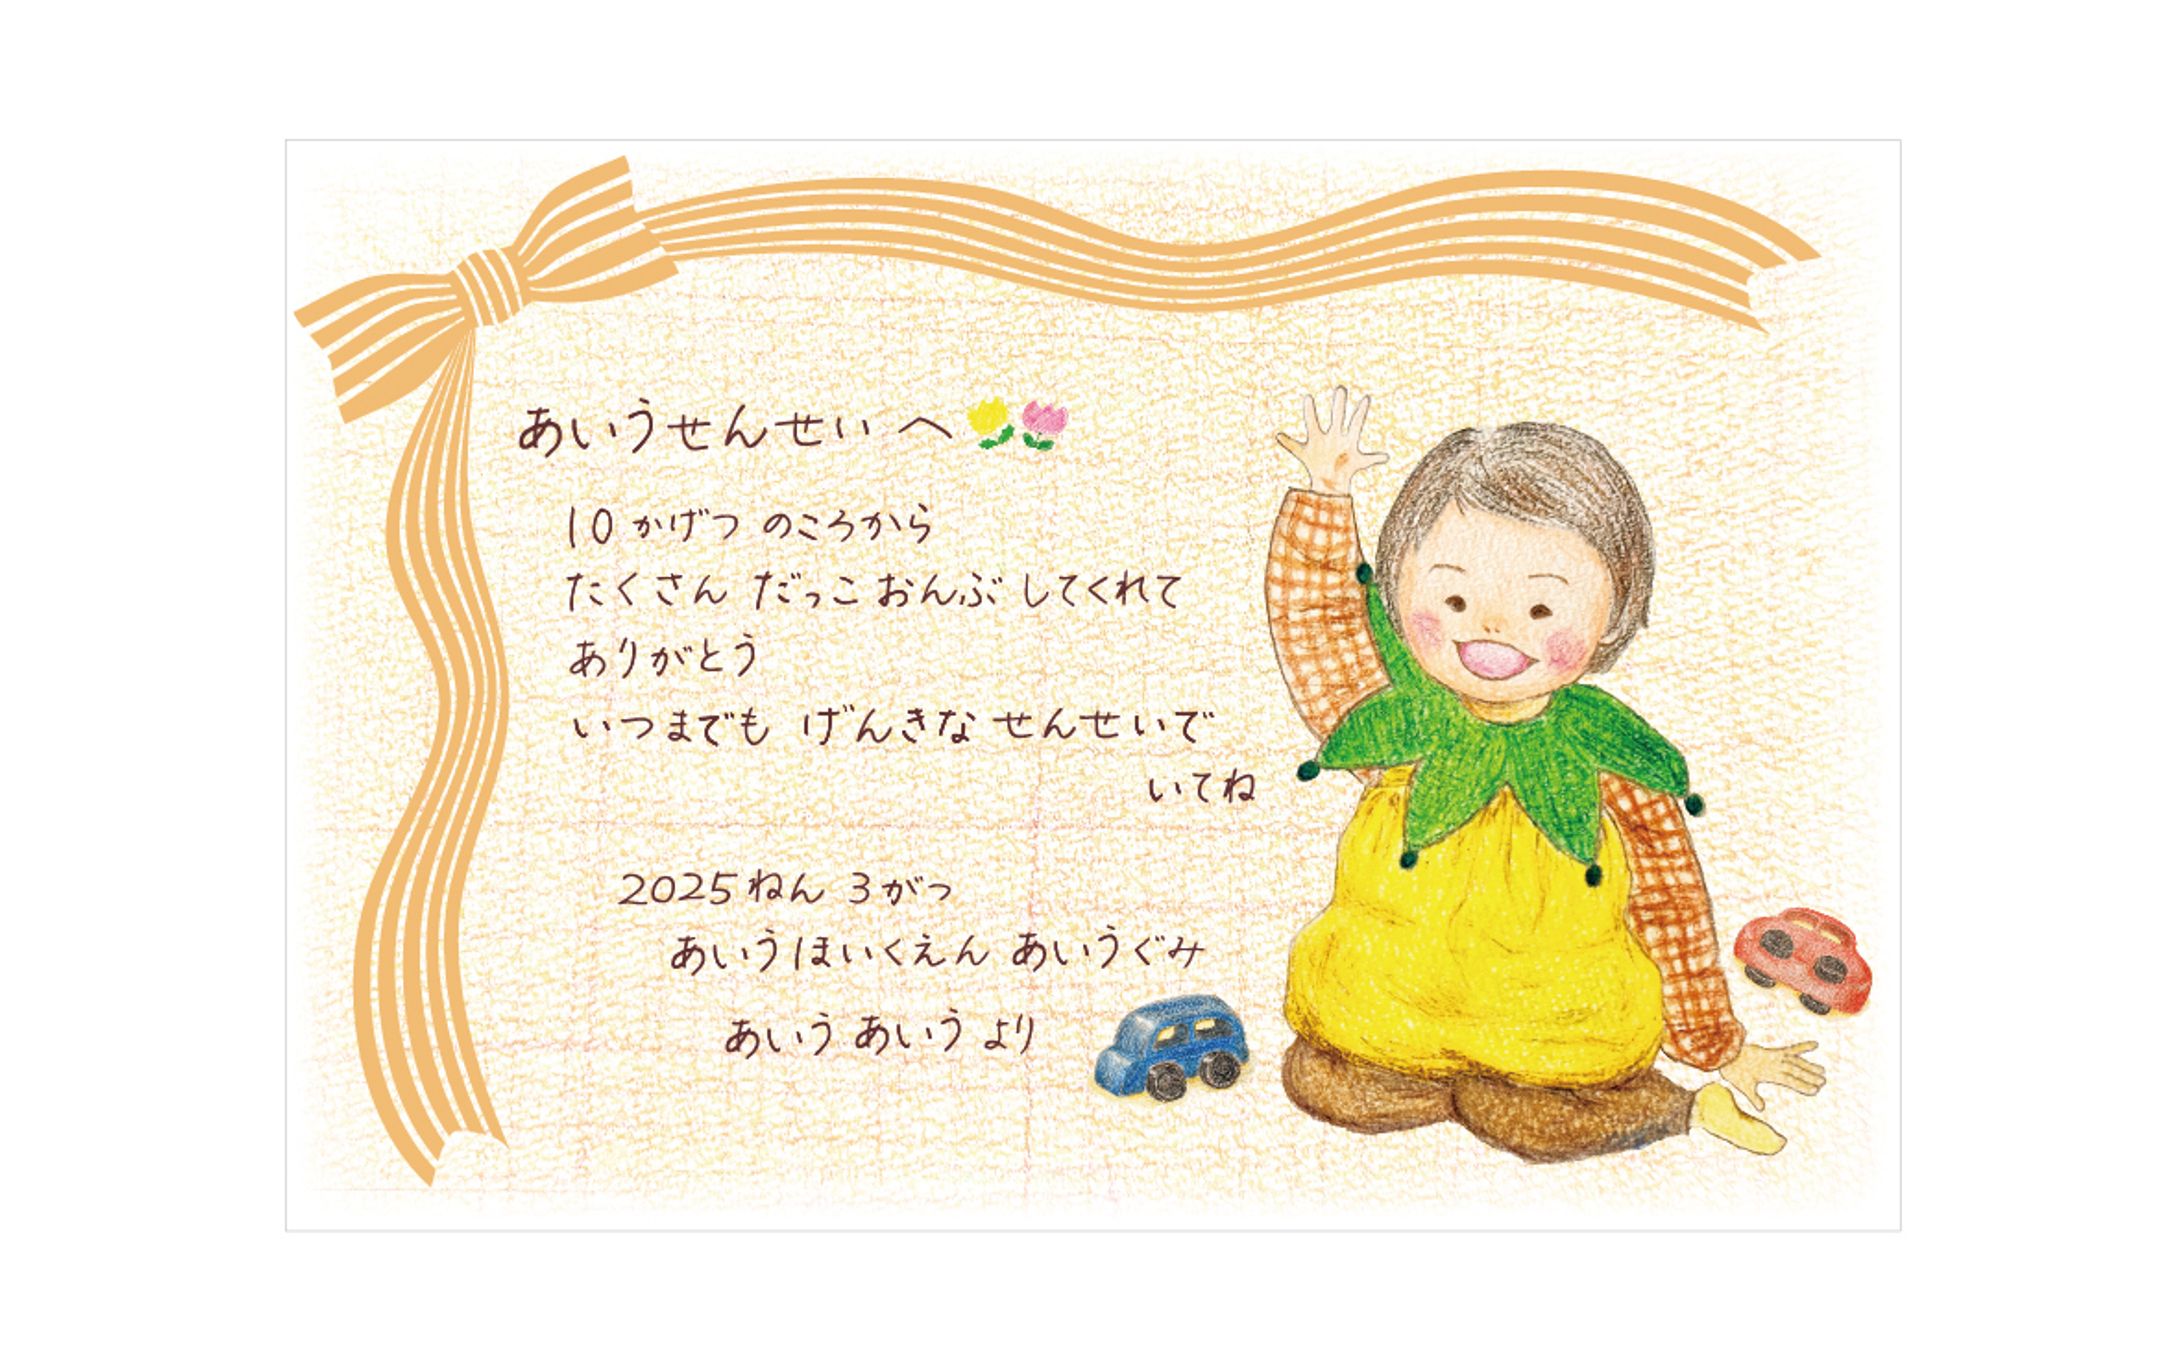 あいうせんせい へ
10かげつ のころから
たくさん だっこ おんぶ してくれて
ありがとう
いつまでも げんきな せんせいで
いてね
2025ねん 3がつ
あいうほいくえん あいうぐみ
あいう あいう より